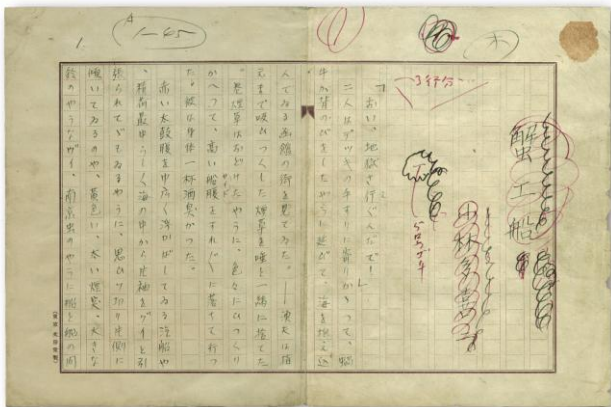 蟹工船
小林多喜二
3行分
「おい、地獄さ行ぐんだで！」
二人はデッキの手すりに寄りかゝって、蝸
牛が背のびをしたやうに延びて、海を抱え込
んでゐる函館の街を見てゐた。――漁夫は指
元まで吸ひつくした煙草を唾と一緒に捨てた
。巻煙草はおどけたやうに、色々にひっくり
かへって、高い船腹をすれ〴〵に落ちて行っ
た。彼は身体一杯酒臭かった。
赤い太鼓腹を巾広く浮かばしてゐる汽船や
、積荷最中らしく海の中から片袖をグイと引
張られてゞもゐるやうに、思ひッ切り片側に
傾いてゐるのや、黄色い、太い煙突、大きな
鈴のやうなヴイ、南京虫のやうに船と船の間
1—45
1.